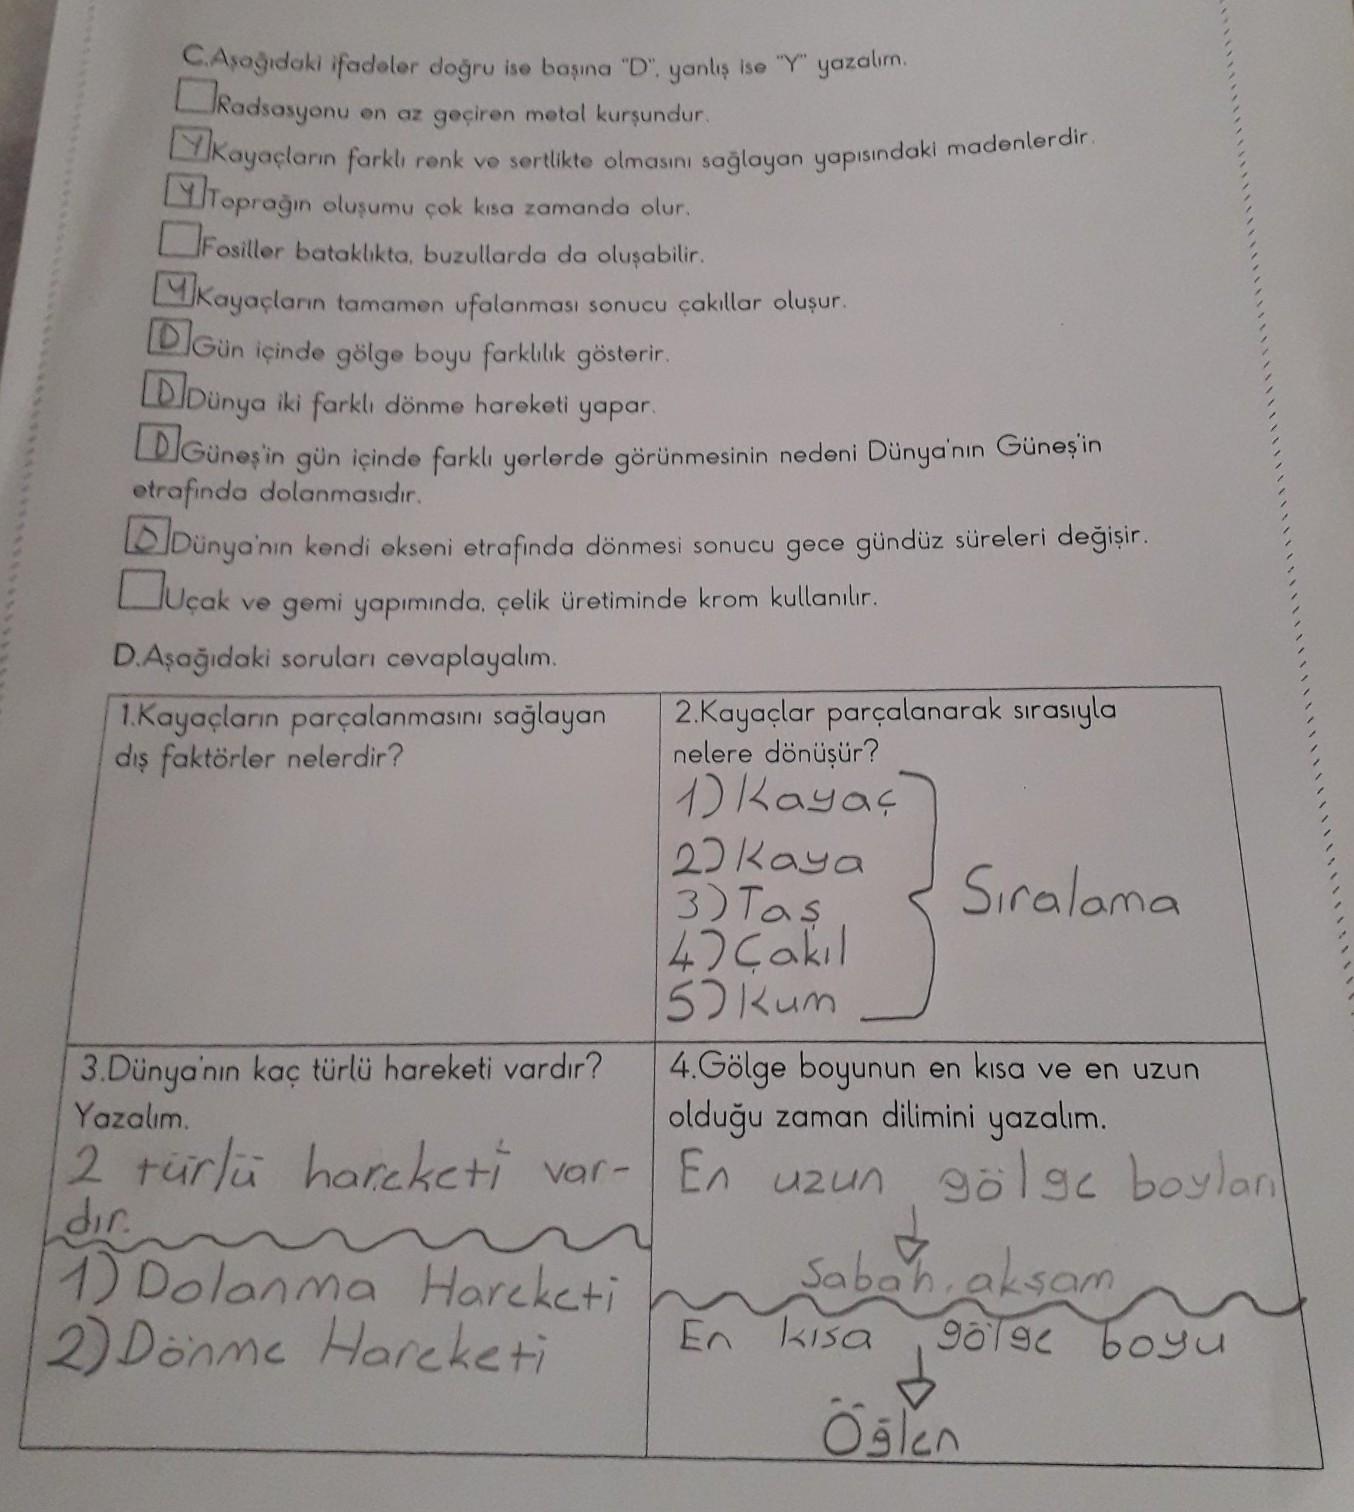 C.Aşağıdaki ifadeler doğru ise başına "D", yanlış ise "Y" yazalım.
Radsasyonu en az geçiren metal kurşundur.
Y Kayaçların farklı renk ve sertlikte olmasını sağlayan yapısındaki madenlerdir.
Y Toprağın oluşumu çok kısa zamanda olur.
Fosiller bataklıkta, buzullarda da oluşabilir.
Y Kayaçların tamamen ufalanması sonucu çakıllar oluşur.
D Gün içinde gölge boyu farklılık gösterir.
D Dünya iki farklı dönme hareketi yapar.
D Güneş'in gün içinde farklı yerlerde görünmesinin nedeni Dünya'nın Güneş'in
etrafında dolanmasıdır.
D Dünya'nın kendi ekseni etrafında dönmesi sonucu gece gündüz süreleri değişir.
Uçak ve gemi yapımında, çelik üretiminde krom kullanılır.
D.Aşağıdaki soruları cevaplayalım.
1.Kayaçların parçalanmasını sağlayan
dış faktörler nelerdir?
2.Kayaçlar parçalanarak sırasıyla
nelere dönüşür?
1) Kayaç
2) Kaya
3) Taş
4) Çakıl
5) Kum
Sıralama
3.Dünya'nın kaç türlü hareketi vardır?
Yazalım.
2 türlü hareketi var-
dır.
1) Dolanma Hareketi
2) Dönme Hareketi
4.Gölge boyunun en kısa ve en uzun
olduğu zaman dilimini yazalım.
En uzun gölge boyları
Sabah, akşam
En kısa gölge boyu
Öğlen